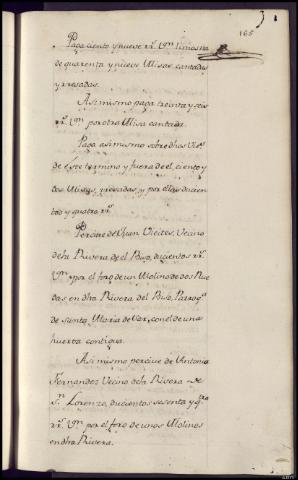 165
Paga ciento y nueve rr.s v.on limosna
de quarenta y nueve Misas cantadas
y rezadas.
Asi mismo paga treinta y seis
rr.s v.on por otra Misa cantada.
Paga asi mismo sobre dhos
de este termino y fuera de el, ciento y
dos Misas, rezadas, y por ellas ducien
tos y quatro rr.s
Percive de Juan Vieites, Vecino
de la Rivera de el Biso, ducientos rr.s
v.on por el foro de un Molino de dos Rue
das en dha Rivera del Biso, Parroq.a
de Santa Maria de Sar, con el de una
huerta contigua.
Asi mismo percive de Antonio
Fernandez Vecino de la Rivera de
S.n Lorenzo, ducientos sesenta y q.tro
rr.s v.on por el foro de unos Molinos
en dha Rivera.